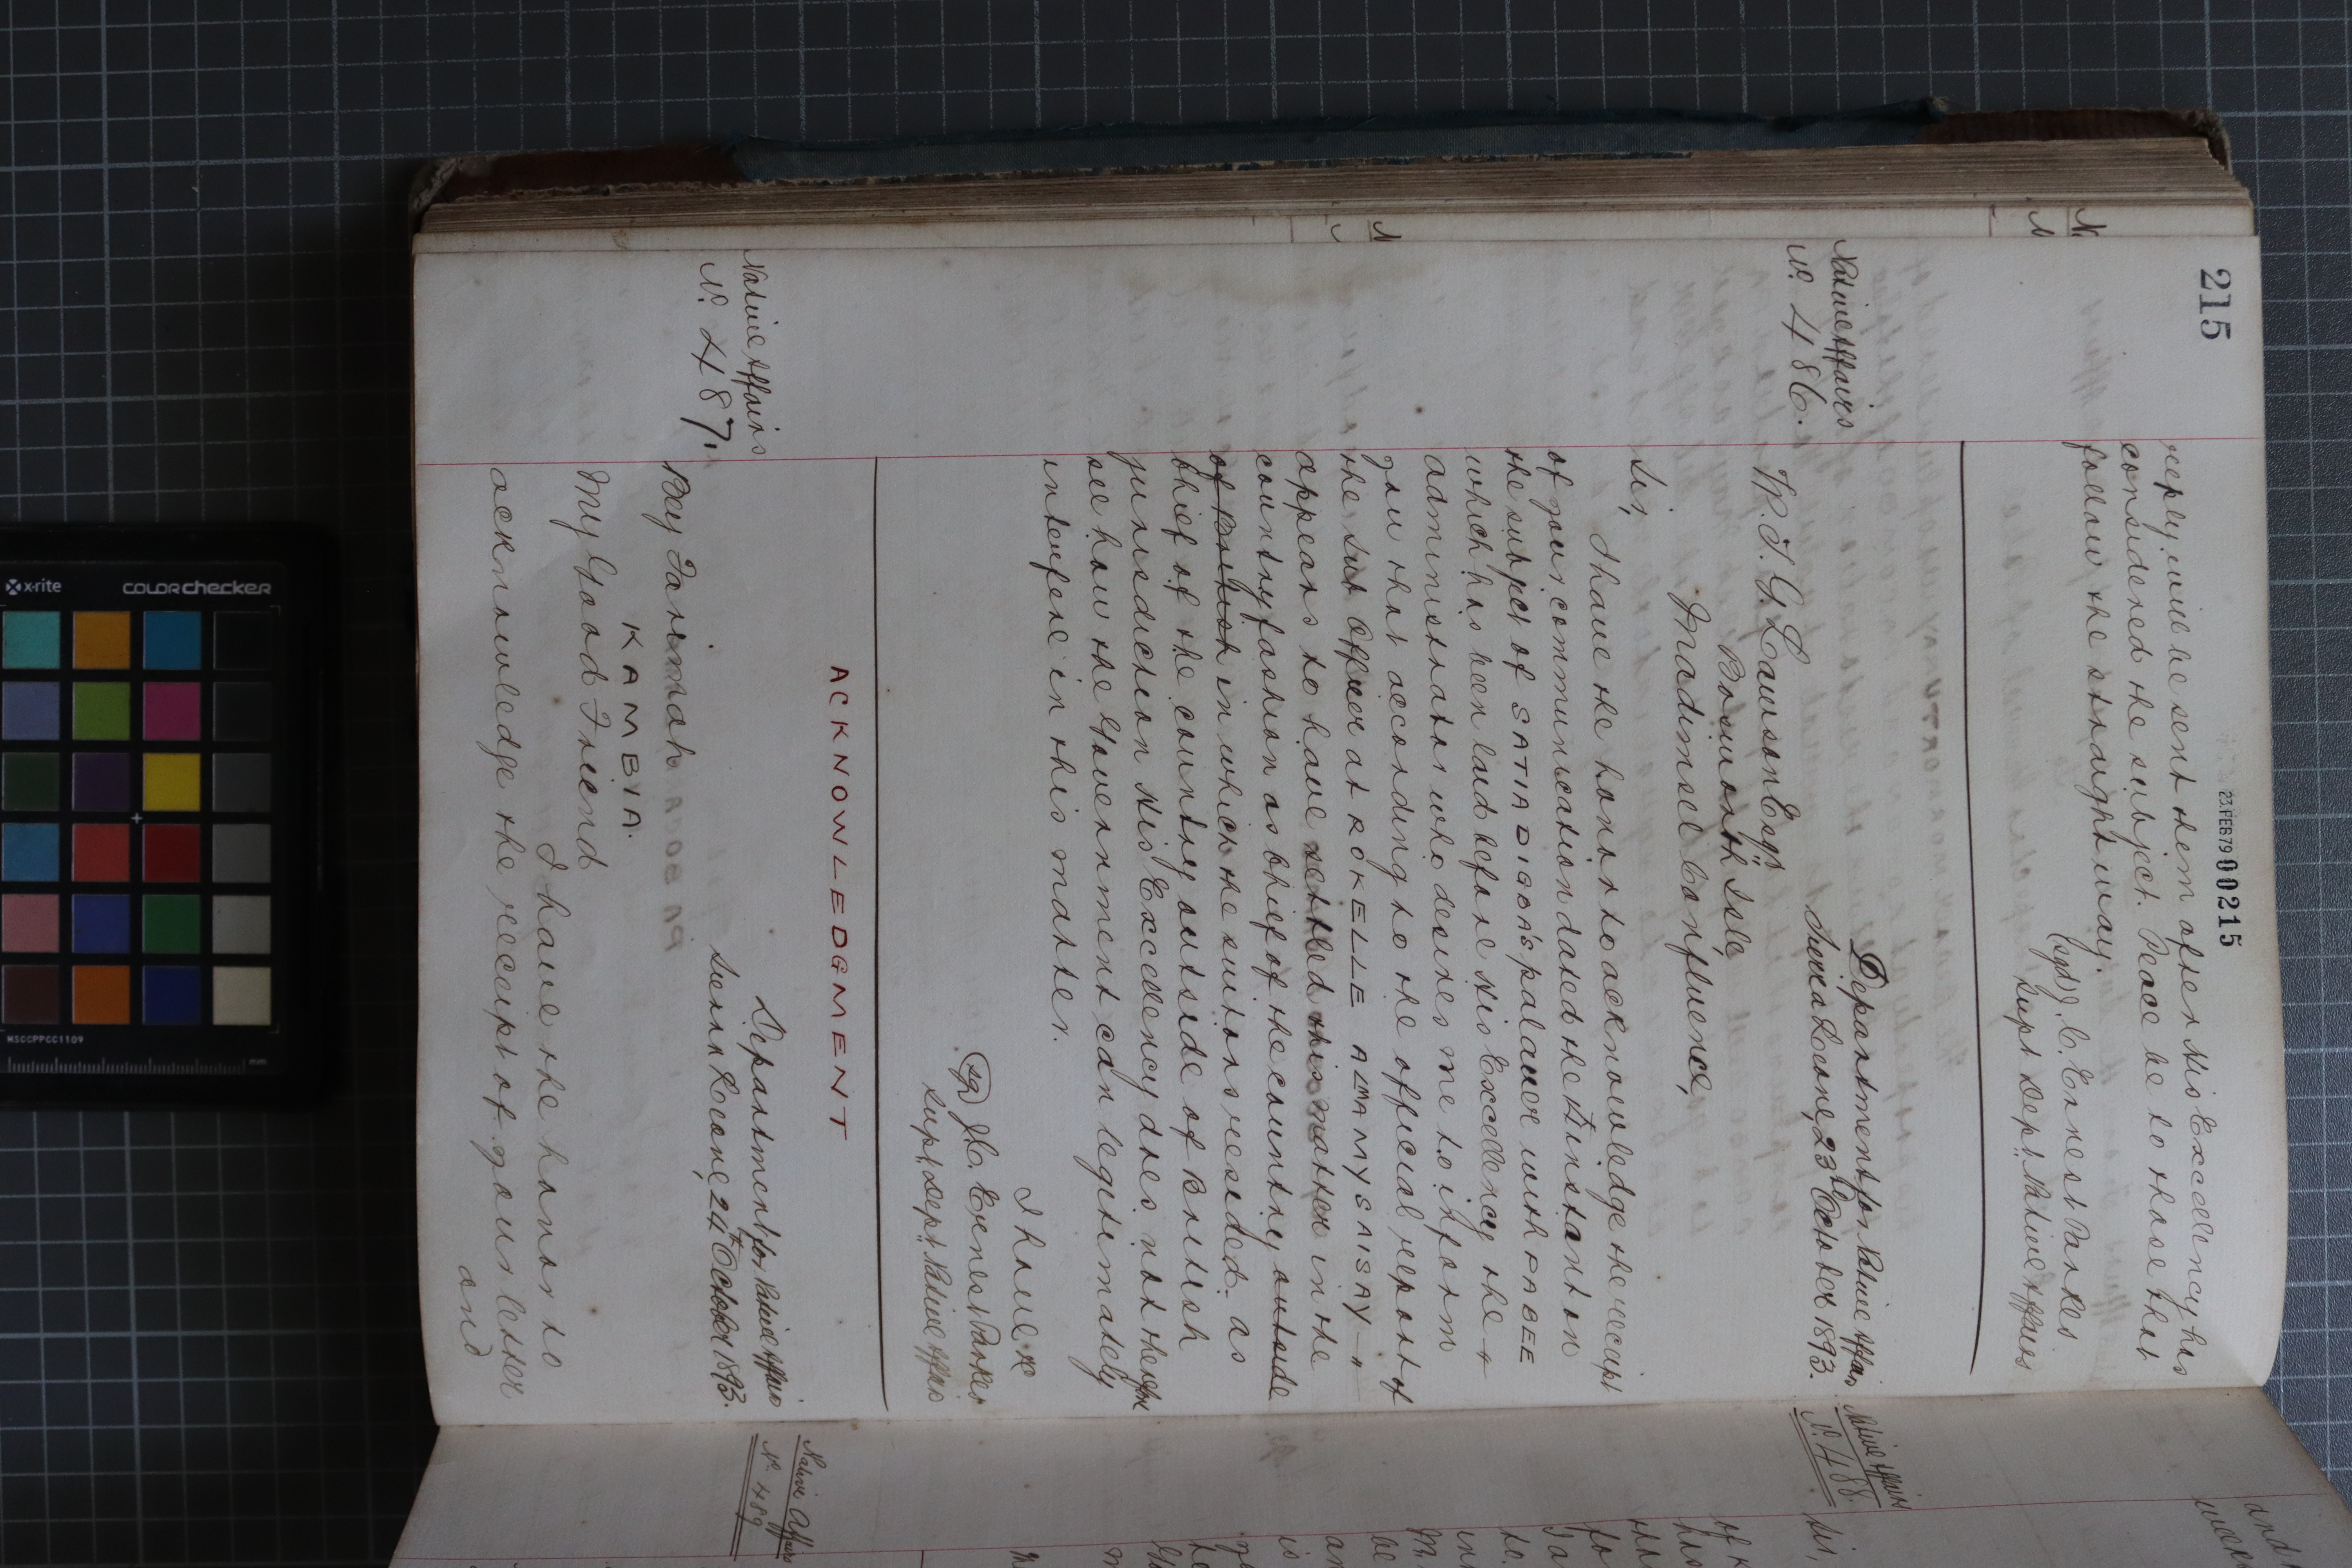 215
23 FEB 79 00215
reply will be sent them after His Excellency has
considered the subject. Peace be to those that
follow the straight way.
(sgd) J. C. Ernest Parkes
Supt Dept. Native Affairs
Native Affairs
No. 486.
Department for Native Affairs
Sierra Leone, 23rd October 1893.
T. G. Lawson Esqr
Bosworth Isle,
Madimsel Confluence,
Sir,
I have the honor to acknowledge the receipt
of your communication dated the instant on
the subject of SATIA DIGBA'S palaver with PABEE
which has been laid before His Excellency the
Administrator who desires me to inform
you that according to the official report of
the Sub Officer at ROKELLE ALMAMY SAISAY
appears to have settled this matter in the
country fashion as Chief of the country outside
of British in which the suitors resided. as
Chief of the country outside of British
jurisdiction His Excellency does not therefore
see how the Government can legitimately
interfere in this matter.
I have &c
(sgd) J. C. Ernest Parkes
Supt. Dept. Native Affairs
ACKNOWLEDGMENT
Native Affairs
No. 487.
Department for Native Affairs
Sierra Leone, 24th October 1893.
Bey Farimah
KAMBIA.
My Good Friend
I have the honor to
acknowledge the receipt of your letter
and
Native Affairs
No. 488.
Sir,
Native Affairs
No. 489
and
x-rite
COLORchecker
MSCCPPCC1109
mm